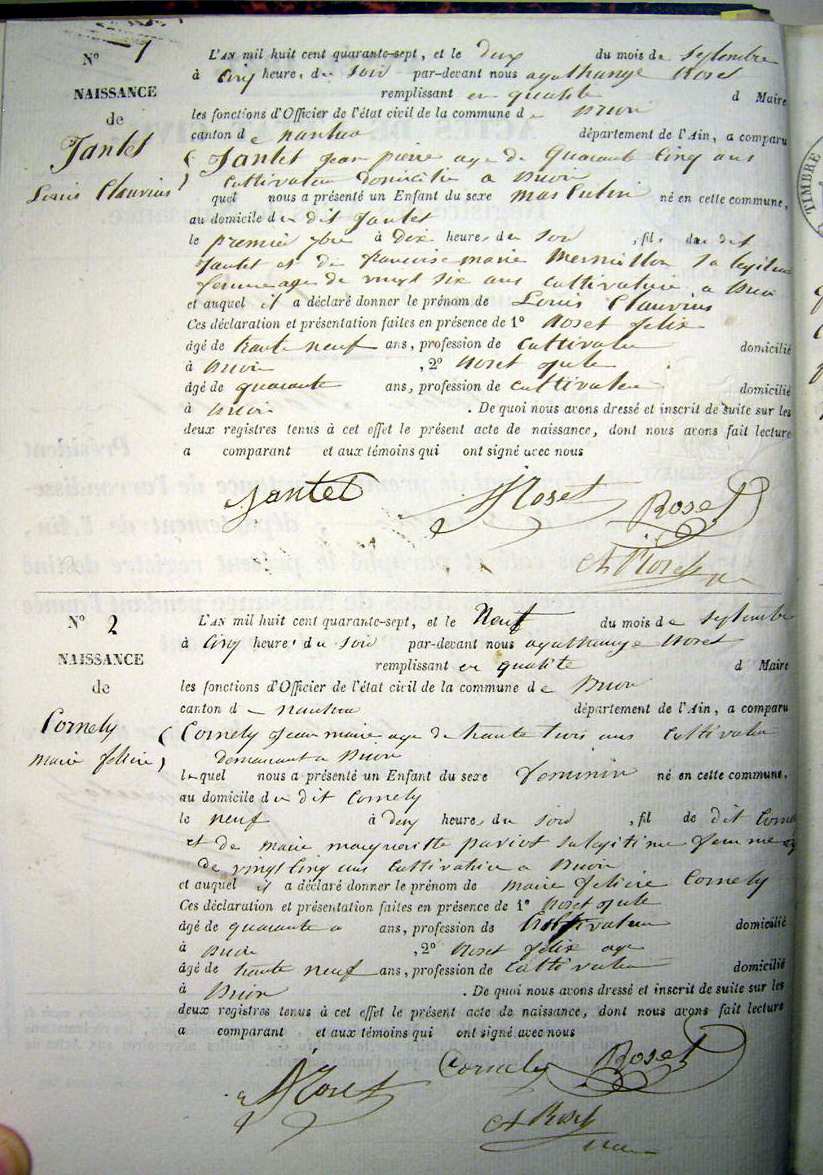 N° 1
NAISSANCE
de
Jantet
Louis Clauvius
L'AN mil huit cent quarante-sept, et le deux du mois de Septembre
à Cinq heure, du Soir par-devant nous agathange Roset
remplissant en qualité d Maire
les fonctions d'Officier de l'état civil de la commune de Brion
canton de nantua département de l'Ain, a comparu
Jantet jean pierre age de quarante Cinq ans
Cultivateur domicilié a Brion
quel nous a présenté un Enfant du sexe masculin né en cette commune,
au domicile du dit Jantet
le premier 7bre à dix heure, du Soir , fil, du dit
Jantet et de françoise marie Sa legitime
femme age de vingt six ans Cultivatrice a Brion
et auquel il a déclaré donner le prénom de Louis Clauvius
Ces déclaration et présentation faites en présence de 1° Roset felix
âgé de trante neuf ans, profession de Cultivateur domicilié
à Brion , 2° Roset
âgé de quarante ans, profession de Cultivateur domicilié
à Brion . De quoi nous avons dressé et inscrit de suite sur les
deux registres tenus à cet effet le présent acte de naissance, dont nous avons fait lecture
a comparant et aux témoins qui ont signé avec nous
Jantet Roset Roset
Roset
N° 2
NAISSANCE
de
Cornely
marie felicie
L'AN mil huit cent quarante-sept, et le Neuf du mois de Septembre
à Cinq heure, du Soir par-devant nous agathange Roset
remplissant en qualité d Maire
les fonctions d'Officier de l'état civil de la commune de Brion
canton de nantua département de l'Ain, a comparu
Cornely jean marie age de trante trois ans Cultivateur
demeurant a Brion
lequel nous a présenté un Enfant du sexe feminin né en cette commune,
au domicile du dit Cornely
le neuf à deux heure, du Soir , fil de dit Cornely
et de marie margueritte pariot Sa legitime femme
de vingt Cinq ans Cultivatrice a Brion
et auquel il a déclaré donner le prénom de marie felicie Cornely
Ces déclaration et présentation faites en présence de 1° Roset
âgé de quarante a ans, profession de Cultivateur domicilié
à Brion , 2° Roset felix age
âgé de trante neuf ans, profession de Cultivateur domicilié
à Brion . De quoi nous avons dressé et inscrit de suite sur les
deux registres tenus à cet effet le présent acte de naissance, dont nous avons fait lecture
a comparant et aux témoins qui ont signé avec nous
Roset Cornely Roset
Roset
TIMBRE